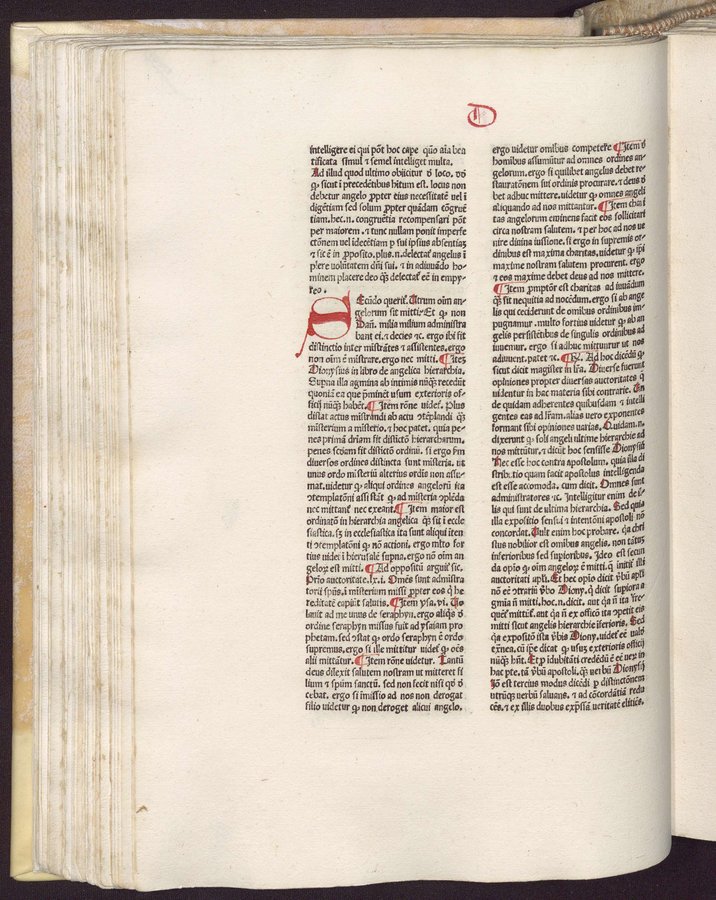 D
intelligere ei qui põt hoc cape quõ aĩa bea
tificata simul ⁊ semel intelliget multa.
Ad illud quod ultimo obijcitur ð loco. ðð
ꝙ sicut ĩ precedẽtibus hĩtum est. locus non
debetur angelo ꝓpter eius necessitatẽ vel ĩ
digẽtiam sed solum ꝓpter quãdam cõgruẽ
tiam. hec. n. congruẽtia recompensari põt
per maiorem. ⁊ tunc nullam ponit imperfe
ctõnem vel ĩdẽẽtiam
⁊ sic ẽ in ꝓposito. plus. n. delectat̃ angelus ĩ
ĩplere volũtatem dñi sui. ⁊ in adiuuãdo ho
minem placere deo q̃ȝ delectat̃ eẽ in empy
reo.
SEcũdo querit̃. Utrum oĩm an
gelorum sit mitti. Et ꝙ non
Dañ. milia milium administra
bant ei. ⁊ decies ⁊c. ergo ibi fit
distinctio inter mĩstrãtes ⁊ assistentes. ergo
non oĩm ẽ mĩstrare. ergo nec mitti. ¶ Iteȝ
Dionysius in libro de angelica hierarchia.
Supna illa agmina ab intimis nũq̃ȝ recedũt
quoniã ea que p̃minẽt usum exterioris of-
ficij nũq̃ȝ habẽt. ¶ Item rõne videt̃. Plus
distat actus mĩstrandi ab actu ↄtẽplandi q̃ȝ
mĩsterium a mĩsterio. ⁊ hoc patet. quia pe-
nes primã dr̃iam fit distictõ hierarcharum.
penes sc̃ðam fit distictõ ordinũ. si ergo ẽm
diuersos ordines distincta sunt mĩsteria. ut
unus ordo mĩsteriũ alterius ordis non assu-
mat. videtur ꝙ aliqui ordines angelorũ ita
ↄtemplatõni assistãt ꝙ ad mĩsteria ↄplẽda
nec mittant̃ nec exeant. ¶ Item maior est
ordinatõ in hierarchia angelica q̃ȝ sit ĩ eccle
siastica. sȝ in ecclesiastica ita sunt aliqui ĩten
ti ↄtemplatõni ꝙ nõ actioni. ergo mlto for
tius videt̃ ĩ hierusalẽ supna. ergo nõ oĩm an
geloꝝ est mitti. ¶ Ad oppositũ arguit̃ sic.
Prĩo auctoritate. lx. i. Oẽs sunt admĩstra
torij spũs. ĩ mĩsterium missi ꝓpter eos q̃ he
reditatẽ capiũt salutis. ¶ Item ysa. vi. Uo
lauit ad me unus de seraphyn. ergo aliq̃s ð
ordine seraphyn missus fuit ad ysaiam pro
phetam. sed ↄstat ꝙ ordo seraphyn ẽ ordo
supremus. ergo si ille mittitur videt̃ ꝙ oẽs
alij mittãtur. ¶ Item rõne uidetur. Tantũ
deus dilexit salutem nostram ut mitteret fi
lium ⁊ spũm sanctũ. sed non fecit nisi qð ð
cebat. ergo si ĩmissio ad nos non derogat
filio uidetur ꝙ non deroget alicui angelo.
ergo uidetur omĩbus competere ¶ Item ð
homĩbus assumũtur ad omnes ordĩes an-
gelorum. ergo si quilibet angelus debet re-
staurãtõnem sui ordinis procurare. ⁊ deus ð
bet adhuc mittere. uidetur ꝙ omnes angeli
aliquando ad nos mittantur. ¶ Item chari
tas angelorum eminens facit eos sollicitari
circa nostram salutem. ⁊ per hoc ad nos ue
nire diuina iussione. si ergo in supremis or-
dinibus est maxima charitas, videtur ꝙ ipĩ
maxime nostram salutem procurent. ergo
⁊ eos maxime debet deus ad nos mittere.
¶ Item ꝓmptior est charitas ad iuuãdum
q̃ȝ sit nequitia ad nocẽdum. ergo si ab ange
lis qui ceciderunt de omĩbus ordinibus im-
pugnamur. multo fortius uidetur ꝙ ab an
gelis persistẽtibus de singulis ordĩbus ad
iuuemur. ergo si adhuc mittuntur ut nos
adiuuent. patet ⁊c. ¶ R̃. Ad hoc dicẽdũ ꝙ
sicut dicit magister in lr̃a. Diuerse fuerunt
opiniones propter diuersas auctoritates q̃
uidentur in hac materia sibi contrarie. Un
de quidam adherentes quibusdam ⁊ intelli
gentes eas ad lr̃am. alias uero exponentes
formant sibi opiniones uarias. Quidam. n.
dixerunt ꝙ soli angeli ultime hierarchie ad
nos mittũtur. ⁊ dicũt hoc sensisse Dionysiũ
Nec esse hoc contra apostolum. quia illa di
strib̃utio quam facit apostolus intelligenda
est esse accomoda. cum dicit. Omnes sunt
administratores ⁊c. Intelligitur enim de il-
lis qui sunt de ultima hierarchia. Sed quia
illa expositio sensui ⁊ intentõni apostoli nõ
concordat. Uult enim hoc probare. q̃a chri
stus nobilior est omĩbus angelis. non tãtuȝ
inferioribus sed supioribus. Ideo est secun
da opĩo ꝙ oĩm angeloꝝ ẽ mitti. q̃ initit̃ illi
auctoritati apl̃i. Et hec opĩo dicit
nõ eẽ ↄtrariũ vb̃o Diony. q̃ dicit supiora a-
gmĩa ñ mitti. hoc. n. dicit. aut q̃a ñ ita fre-
quẽt̃ mittũt̃. aut q̃a ñ ex officõ ita ↄpetit eis
mitti sicut angelis hierarchie ĩferioris. Sed
q̃a expositõ ista vb̃is Diony. uidet̃ eẽ valð
extranea. cũ ip̃e dicat ꝙ usuȝ exterioris officij
nũq̃ȝ hñt. Et ꝑ idubitãti credẽdũ ẽ eẽ uerũ in
hac pte. tã vb̃ũ apostoli. q̃ȝ uerbũ Dionysij
Iõ est tercius modus dicẽdi ꝑ distinctõnem
utrũq̃ȝ uerbũ saluans. ⁊ ad cõcordiãtiã redu
cẽs. ⁊ ex illis duobus exp̃ssam ueritatẽ eliciẽs.